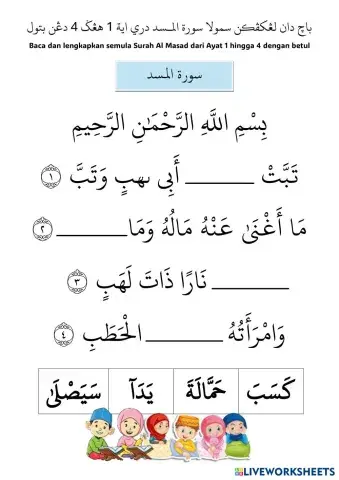 باچ دان لڠكڤكن سمولا سورة المسد دري اية 1 هڠݢ 4 دڠن بتول
Baca dan lengkapkan semula Surah Al Masad dari Ayat 1 hingga 4 dengan betul
سورة المسد
بِسْمِ اللَّهِ الرَّحْمَٰنِ الرَّحِيمِ
تَبَّتْ ________ أَبِى لَهَبٍ وَتَبَّ ١
مَا أَغْنَىٰ عَنْهُ مَالُهُ وَمَا ________ ٢
________ نَارًا ذَاتَ لَهَبٍ ٣
وَامْرَأَتُهُ ________ الْحَطَبِ ٤
كَسَبَ حَمَّالَةَ يَدَآ سَيَصْلَىٰ
LIVEWORKSHEETS